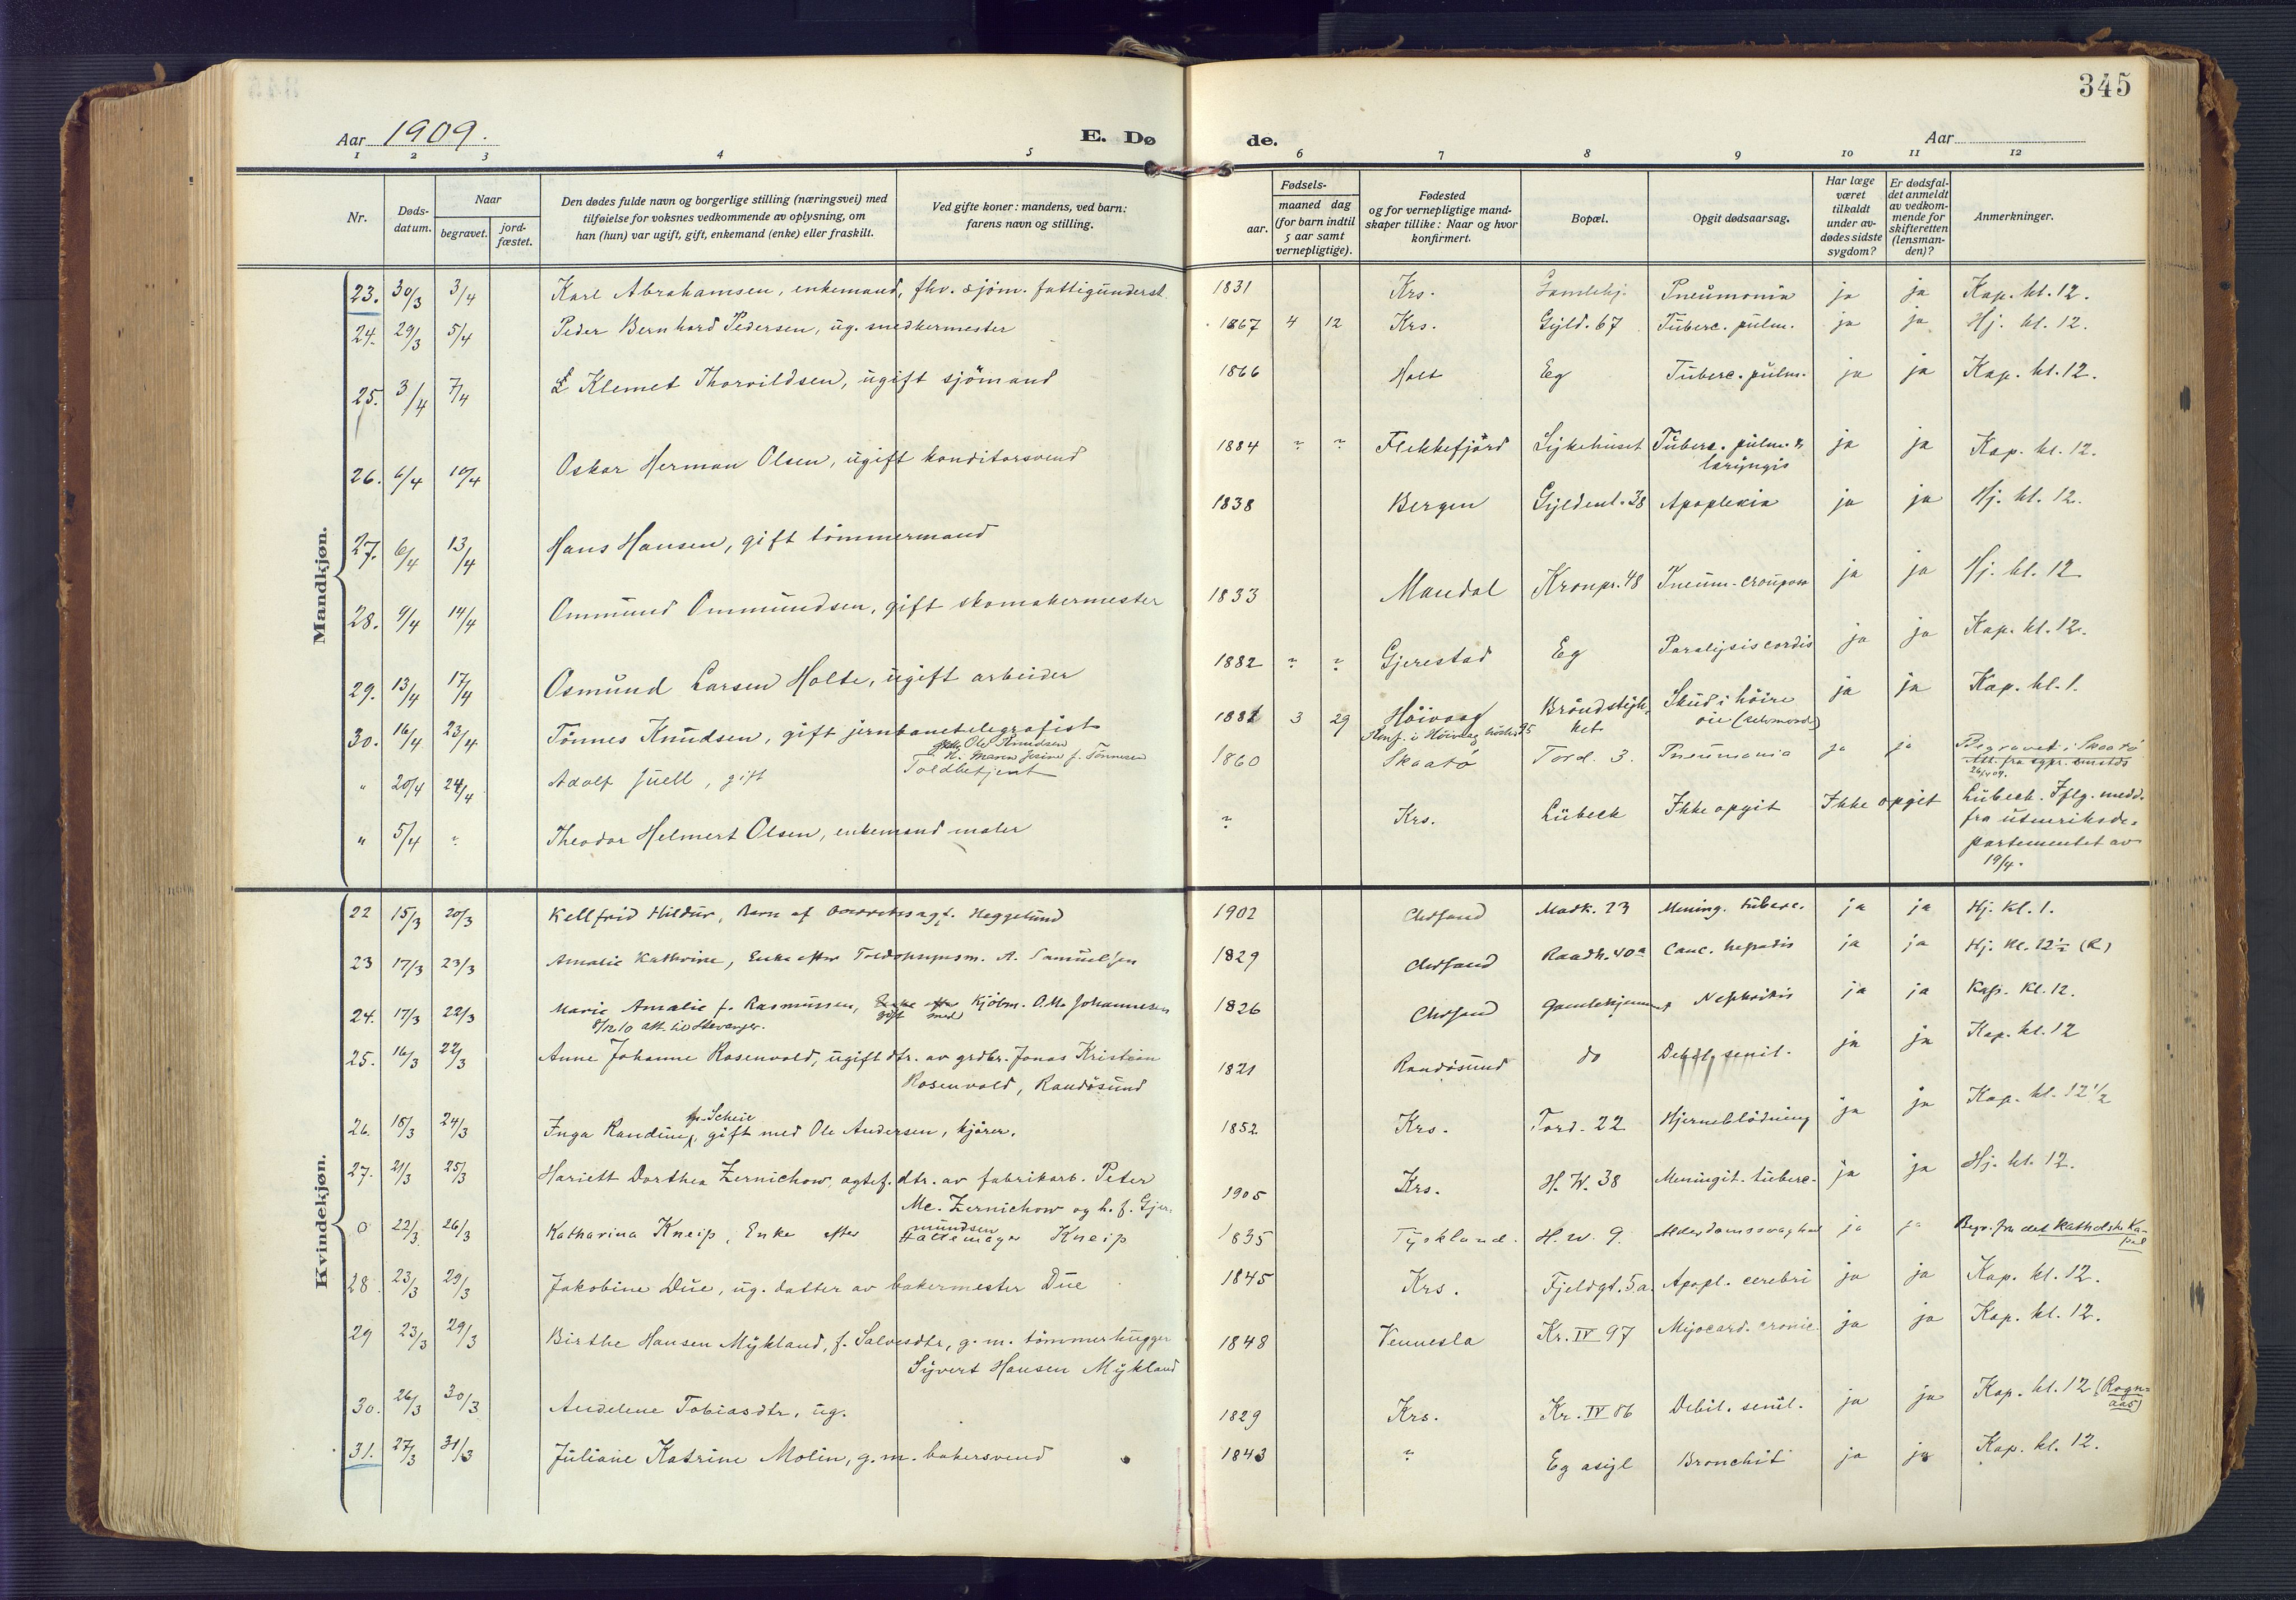 345
Aar 1909.
E. Dø
de.
Aar
1 2 3 4 5 6 7 8 9 10 11 12
Nr.
Døds-
datum.
Naar
begravet.
jord-
fæstet.
Den dødes fulde navn og borgerlige stilling (næringsvei) med
tilføielse for voksnes vedkommende av oplysning, om
han (hun) var ugift, gift, enkemand (enke) eller fraskilt.
Ved gifte koner: mandens, ved barn:
farens navn og stilling.
Fødsels-
aar.
maaned dag
(for barn indtil
5 aar samt
vernepligtige).
Fødested
og for vernepligtige mand-
skaper tillike: Naar og hvor
konfirmert.
Bopæl.
Opgit dødsaarsag.
Har læge
været
tilkaldt
under av-
dødes sidste
sygdom?
Er dødsfal-
det anmeldt
av vedkom-
mende for
skifteretten
(lensman-
den)?
Anmerkninger.
Mandkjøn.
23. 30/3 3/4 Karl Abrahamsen, enkemand, fhv. sjøm. fattigunderst. 1831 Krs. Gamlehj. Pneumonia ja ja Kap. kl. 12.
24. 29/3 5/4 Peder Bernhard Pedersen, ug. snedkermester 1867 4 12 Krs. Gyld. 67 Tuberc. pulm. ja ja Hj. kl. 12.
25. 3/4 7/4 Klemet Thorvildsen, ugift sjömand 1866 Holt Eg Tuberc. pulm. ja ja Kap. kl. 12.
26. 6/4 10/4 Oskar Herman Olsen, ugift konditorsvend 1884 ? ? Flekkefjord Sykehuset Tuberc. pulm. &
laryngis ja ja Kap. kl. 12.
27. 6/4 13/4 Hans Hansen, gift tömmermand 1838 Bergen Gyldenl. 38 Apoplexia ja ja Hj. kl. 12.
28. 9/4 14/4 Ommund Ommundsen, gift skomakermester 1833 Mandal Kronpr. 48 Pneum. crouposa ja ja Hj. kl. 12
29. 13/4 17/4 Osmund Larsen Holte, ugift arbeider 1882 ? ? Gjerestad Eg Paralysis cordis ja ja Kap. kl. 12.
30. 16/4 23/4 Tönnes Knudsen, gift jernbanetelegrafist 1881 3 29 Höivaag Bröndstyk-
ket Skud i höire
öie (selvmord) ja ja Kap. kl. 1.
Ole Knudsen
Maren Josine f. Tönnesen
Konf. i Höivaag hösten 95
" 20/4 24/4 Adolf Juell, gift Toldbetjent 1860 Skaatö Tord. 3. Pneumonia ja ja Begravet i Skaatö
26/4 09.
" 5/4 ? Theodor Helmert Olsen, enkemand maler ? Krs. Lübeck Ikke opgit Ikke opgit Lübeck. Iflg. medd.
fra utenriksde-
partementet av
19/4.
Kvindekjøn.
22 15/3 20/3 Kellfrid Hildur, Barn af Heggelund 1902 Chrsand Mark. 23 Mening. tuberc. ja ja Hj. Kl. 1.
23 17/3 23/3 Amalie Kathrine, Enke efter Toldopsynsm. A. Samuelsen 1829 Chrsand Raadh. 40a Canc. hepatis ja ja Hj. Kl. 12½ (R)
24. 17/3 22/3 Marie Amalie f. Rasmussen, Enke efter Kjöbm. O. M. Johannesen 1826 Chrsand Gamlehjemmet Nephritis ja ja Kap. Kl. 12.
gift med
8/12 10 att. til Stavanger.
25. 16/3 22/3 Anne Johanne Rosenvold, ugift dtr. av grdbr. Jonas Kristian 1821 Randösund do Debil. senil. ja ja Kap. kl. 12
Rosenvold, Randösund
26. 18/3 24/3 Inga Randine, f. Scheie gift med Ole Andersen, kjörer. 1852 Krs. Tord. 22 Hjerneblödning ja ja Kap. kl. 12½
27. 21/3 25/3 Hariett Dorthea Zernichow, egtef. dtr. av fabrikarb. Peter 1905 Krs. H. W. 38 Meningit. tuberc. ja ja Hj. kl. 12.
Mc. Zernichow og h. f. Gjer-
mundsen
0 22/3 26/3 Katharina Kneip, Enke efter Hattemager Kneip 1835 Tyskland. H. W. 9. Alderdomssvaghed ja ja Begr. fra det katholske Ka-
pel
28. 23/3 29/3 Jakobine Due, ug. datter av bakermester Due 1845 Krs. Fjeldgt. 5a. Apopl. cerebri ja ja Kap. kl. 12.
29 23/3 29/3 Birthe Hansen Mykland, f. Salvesdtr, g. m. tömmerhugger 1848 Vennesla Kr. IV 97 Myocard. cronic. ja ja Kap. kl. 12.
Syvert Hansen Mykland
30. 26/3 30/3 Andelene Tobiasdtr, ug. 1829 Krs. Kr. IV 86 Debil. senil. ja ja Kap. kl. 12 (Rogn-
aas)
31. 27/3 31/3 Juliane Katrine Molin, g. m. bakersvend 1843 ? Eg asyl Bronchit ja ja Kap. kl. 12.